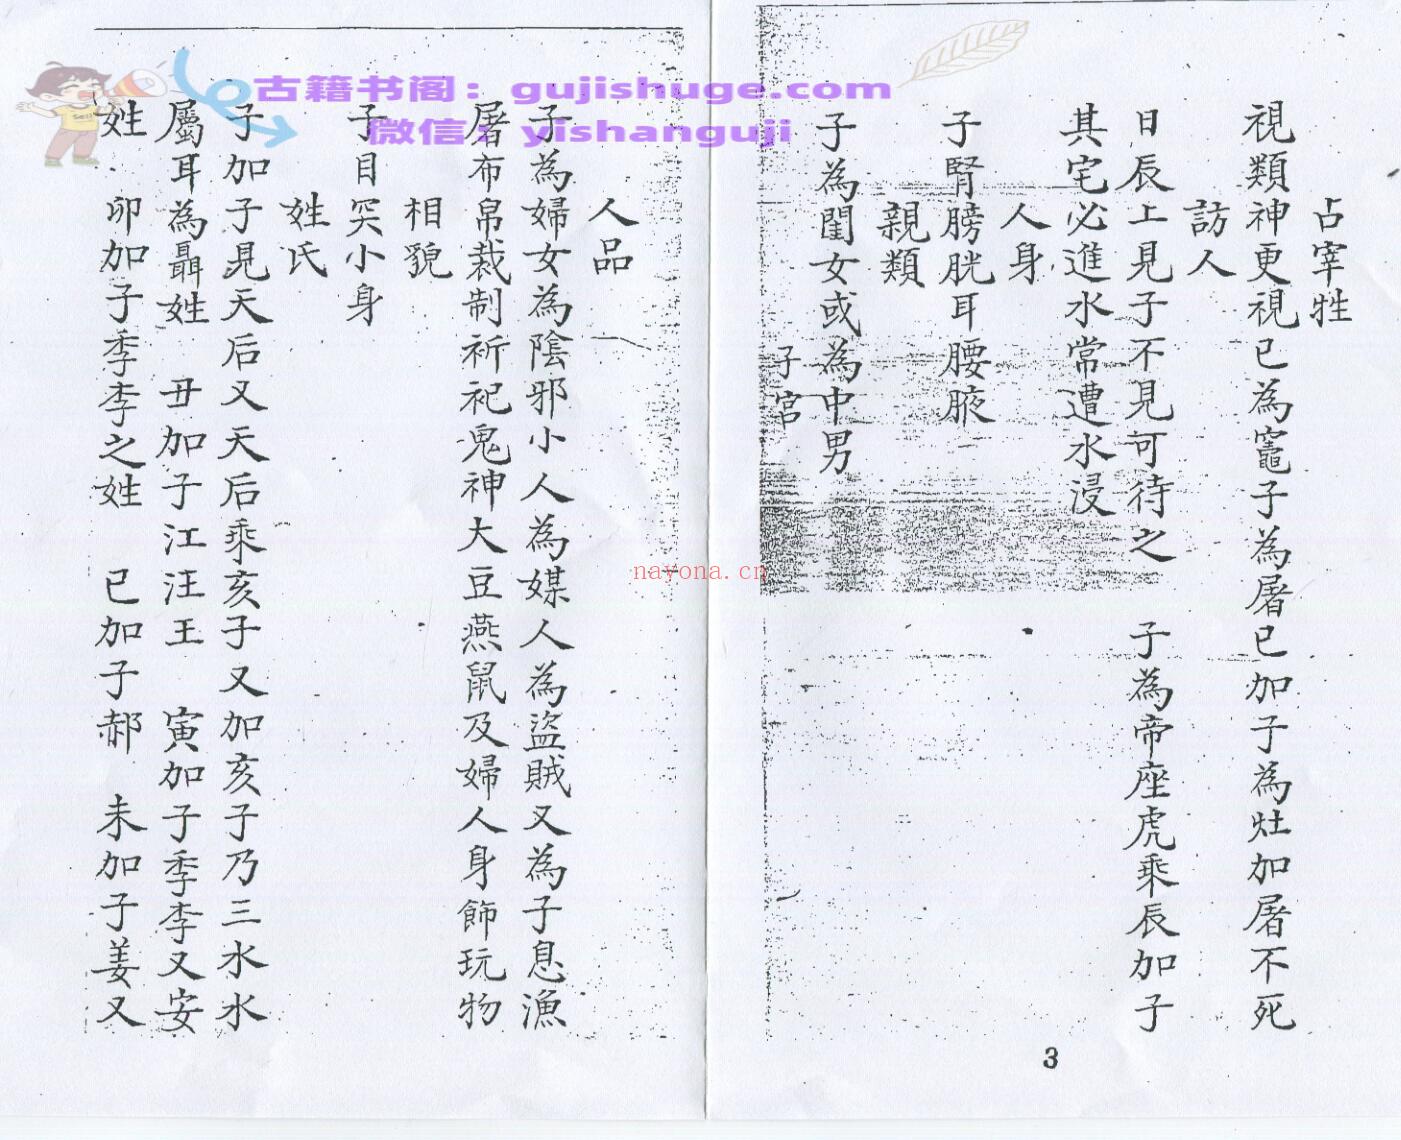 占宰牲
視類神更視巳為竈子為屠巳加子為灶加屠不死
訪人
日辰上見子不見可待之　子為帝座虎乘辰加子
其宅必進水常遭水浸
人身
子腎膀胱耳腰腋
親類
子為閨女或為中男
子宮
3
人品
子為婦女為陰邪小人為媒人為盜賊又為子息漁
屠布帛裁制祈祀鬼神大豆燕鼠及婦人身飾玩物
相貌
子目突小身
姓氏
子加子見天后又天后乘亥子又加亥子乃三水水
屬耳為聶姓　丑加子江汪王　寅加子季李又安
姓　卯加子季李之姓　巳加子郝　未加子姜又
古籍书阁：gujishuge.com
微信：yishanguji
nayona.cn